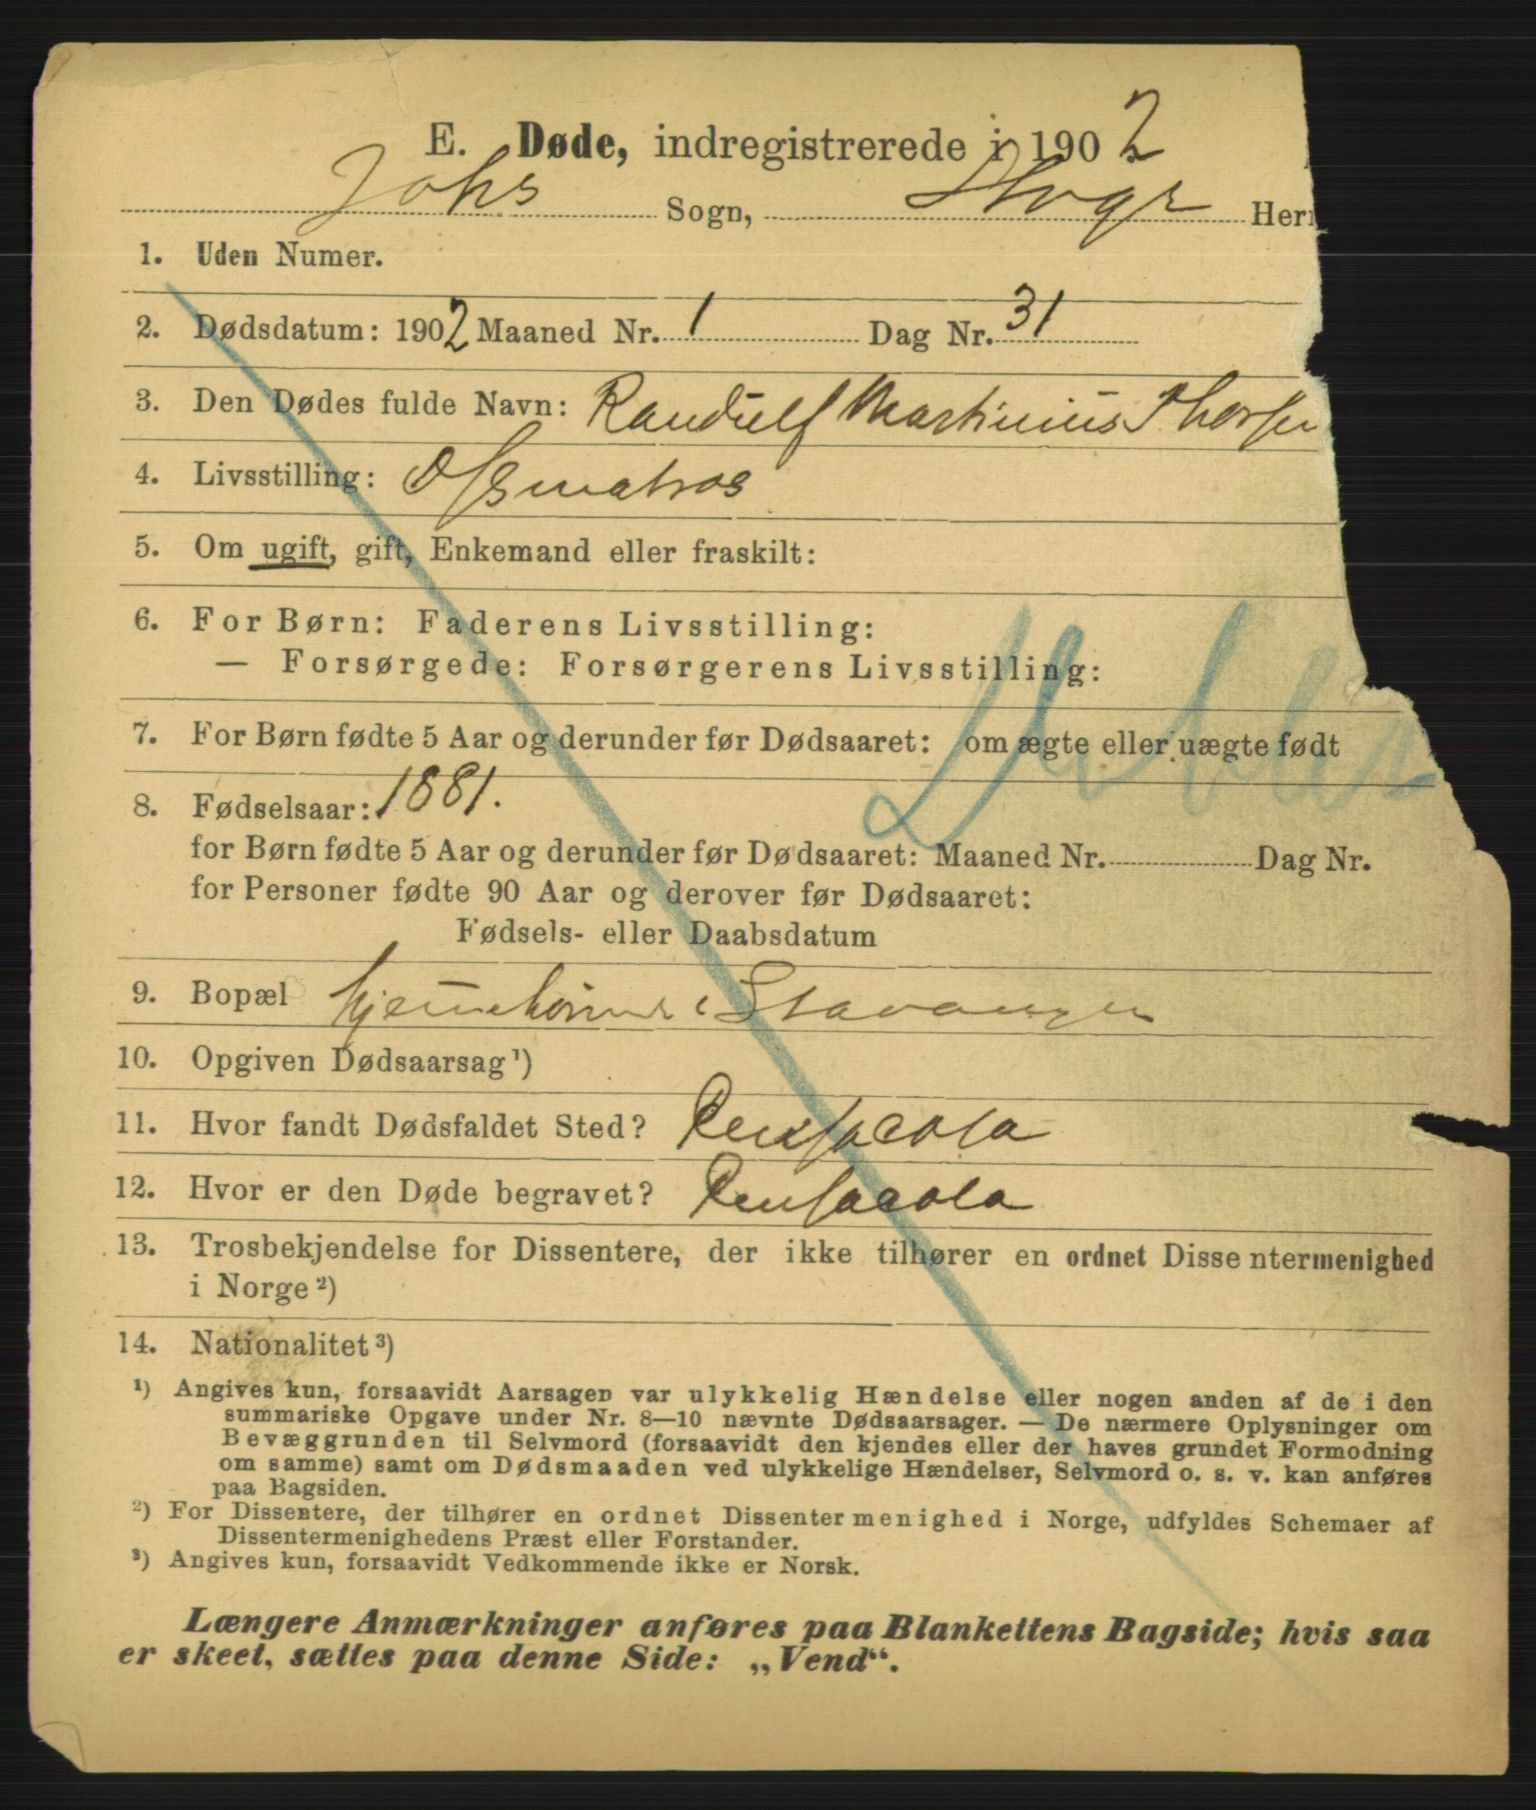 E. Døde, indregistrerede i 1902
Johs Sogn, Stvgr Her
1. Uden Numer.
2. Dødsdatum: 1902 Maaned Nr. 1 Dag Nr. 31
3. Den Dødes fulde Navn: Randulf Martinius Thorsen
4. Livsstilling: matros
5. Om ugift, gift, Enkemand eller fraskilt:
6. For Børn: Faderens Livsstilling:
— Forsørgede: Forsørgerens Livsstilling:
7. For Børn fødte 5 Aar og derunder før Dødsaaret: om ægte eller uægte født
8. Fødselsaar: 1881.
for Børn fødte 5 Aar og derunder før Dødsaaret: Maaned Nr. Dag Nr.
for Personer fødte 90 Aar og derover før Dødsaaret:
Fødsels- eller Daabsdatum
9. Bopæl Stavanger
10. Opgiven Dødsaarsag ¹)
11. Hvor fandt Dødsfaldet Sted? Pensacola
12. Hvor er den Døde begravet? Pensacola
13. Trosbekjendelse for Dissentere, der ikke tilhører en ordnet Dissentermenighed
i Norge ²)
14. Nationalitet ³)
¹) Angives kun, forsaavidt Aarsagen var ulykkelig Hændelse eller nogen anden af de i den
summariske Opgave under Nr. 8—10 nævnte Dødsaarsager. — De nærmere Oplysninger om
Bevæggrunden til Selvmord (forsaavidt den kjendes eller der haves grundet Formodning
om samme) samt om Dødsmaaden ved ulykkelige Hændelser, Selvmord o. s. v. kan anføres
paa Bagsiden.
²) For Dissentere, der tilhører en ordnet Dissentermenighed i Norge, udfyldes Schemaer af
Dissentermenighedens Præst eller Forstander.
³) Angives kun, forsaavidt Vedkommende ikke er Norsk.
Længere Anmærkninger anføres paa Blankettens Bagside; hvis saa
er skeet, sættes paa denne Side: „Vend“.